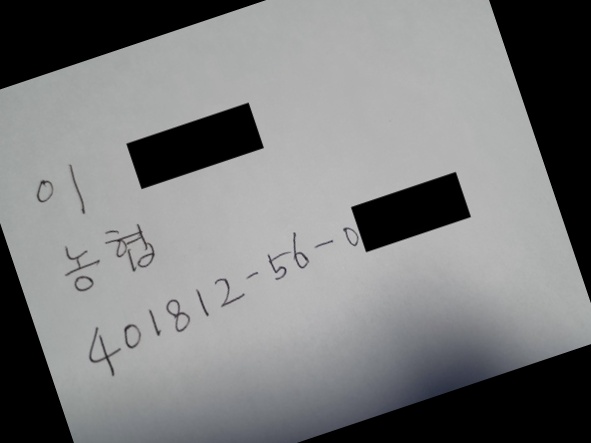 이
농협
401812-56-0